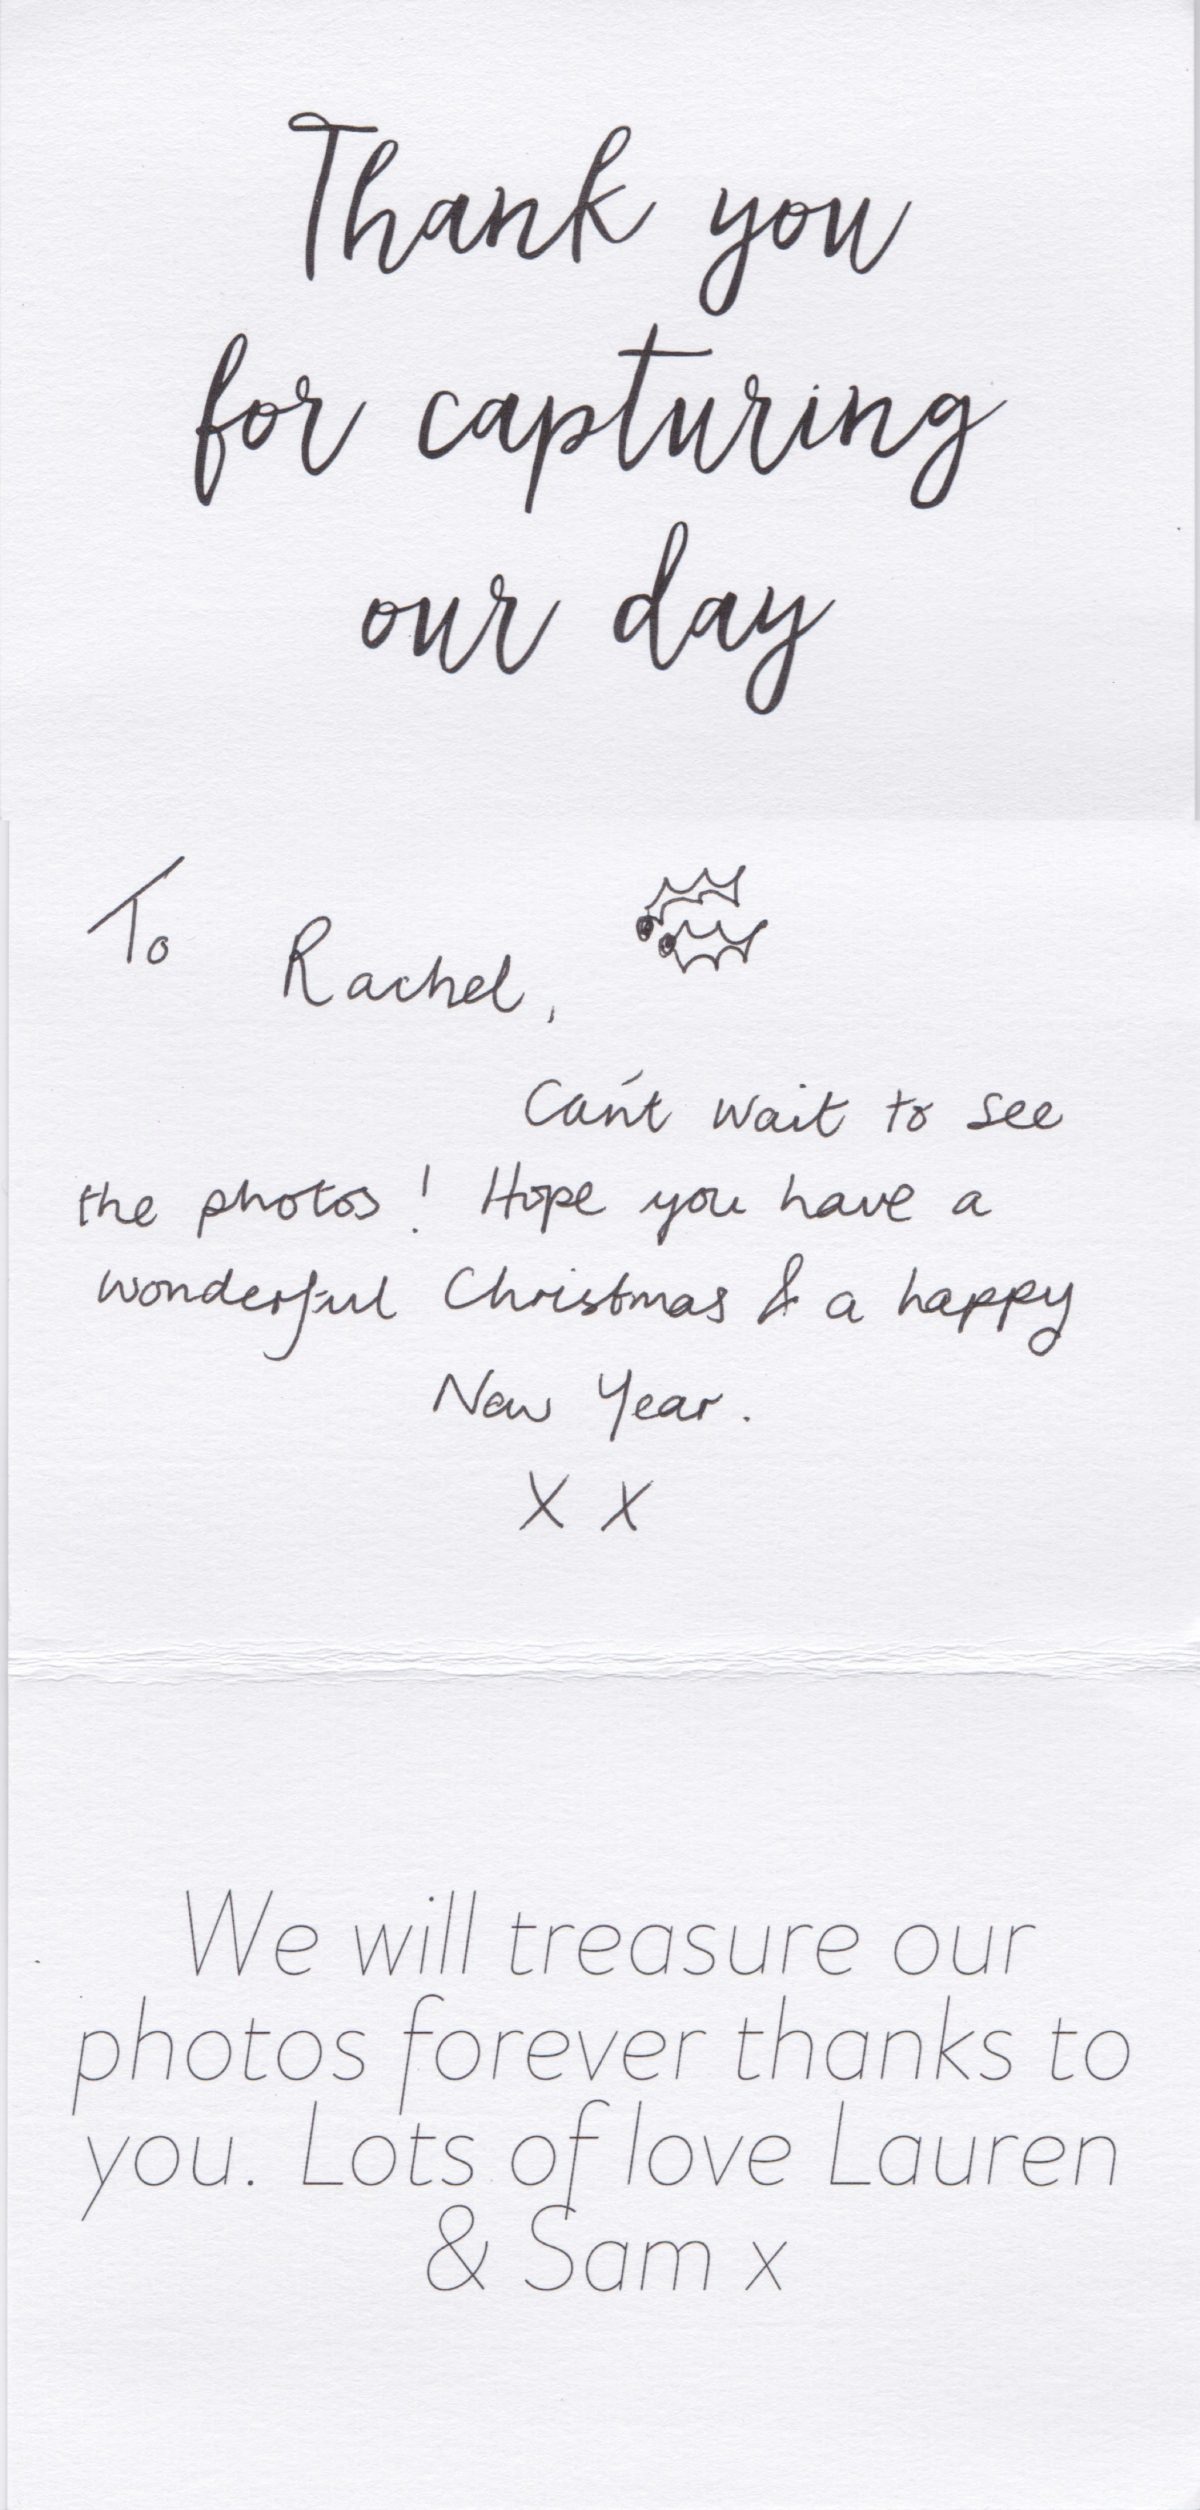 Thank you
for capturing
our day
To Rachel,
Can't wait to see
the photos! Hope you have a
wonderful Christmas & a happy
New Year.
X X
We will treasure our
photos forever thanks to
you. Lots of love Lauren
& Sam x